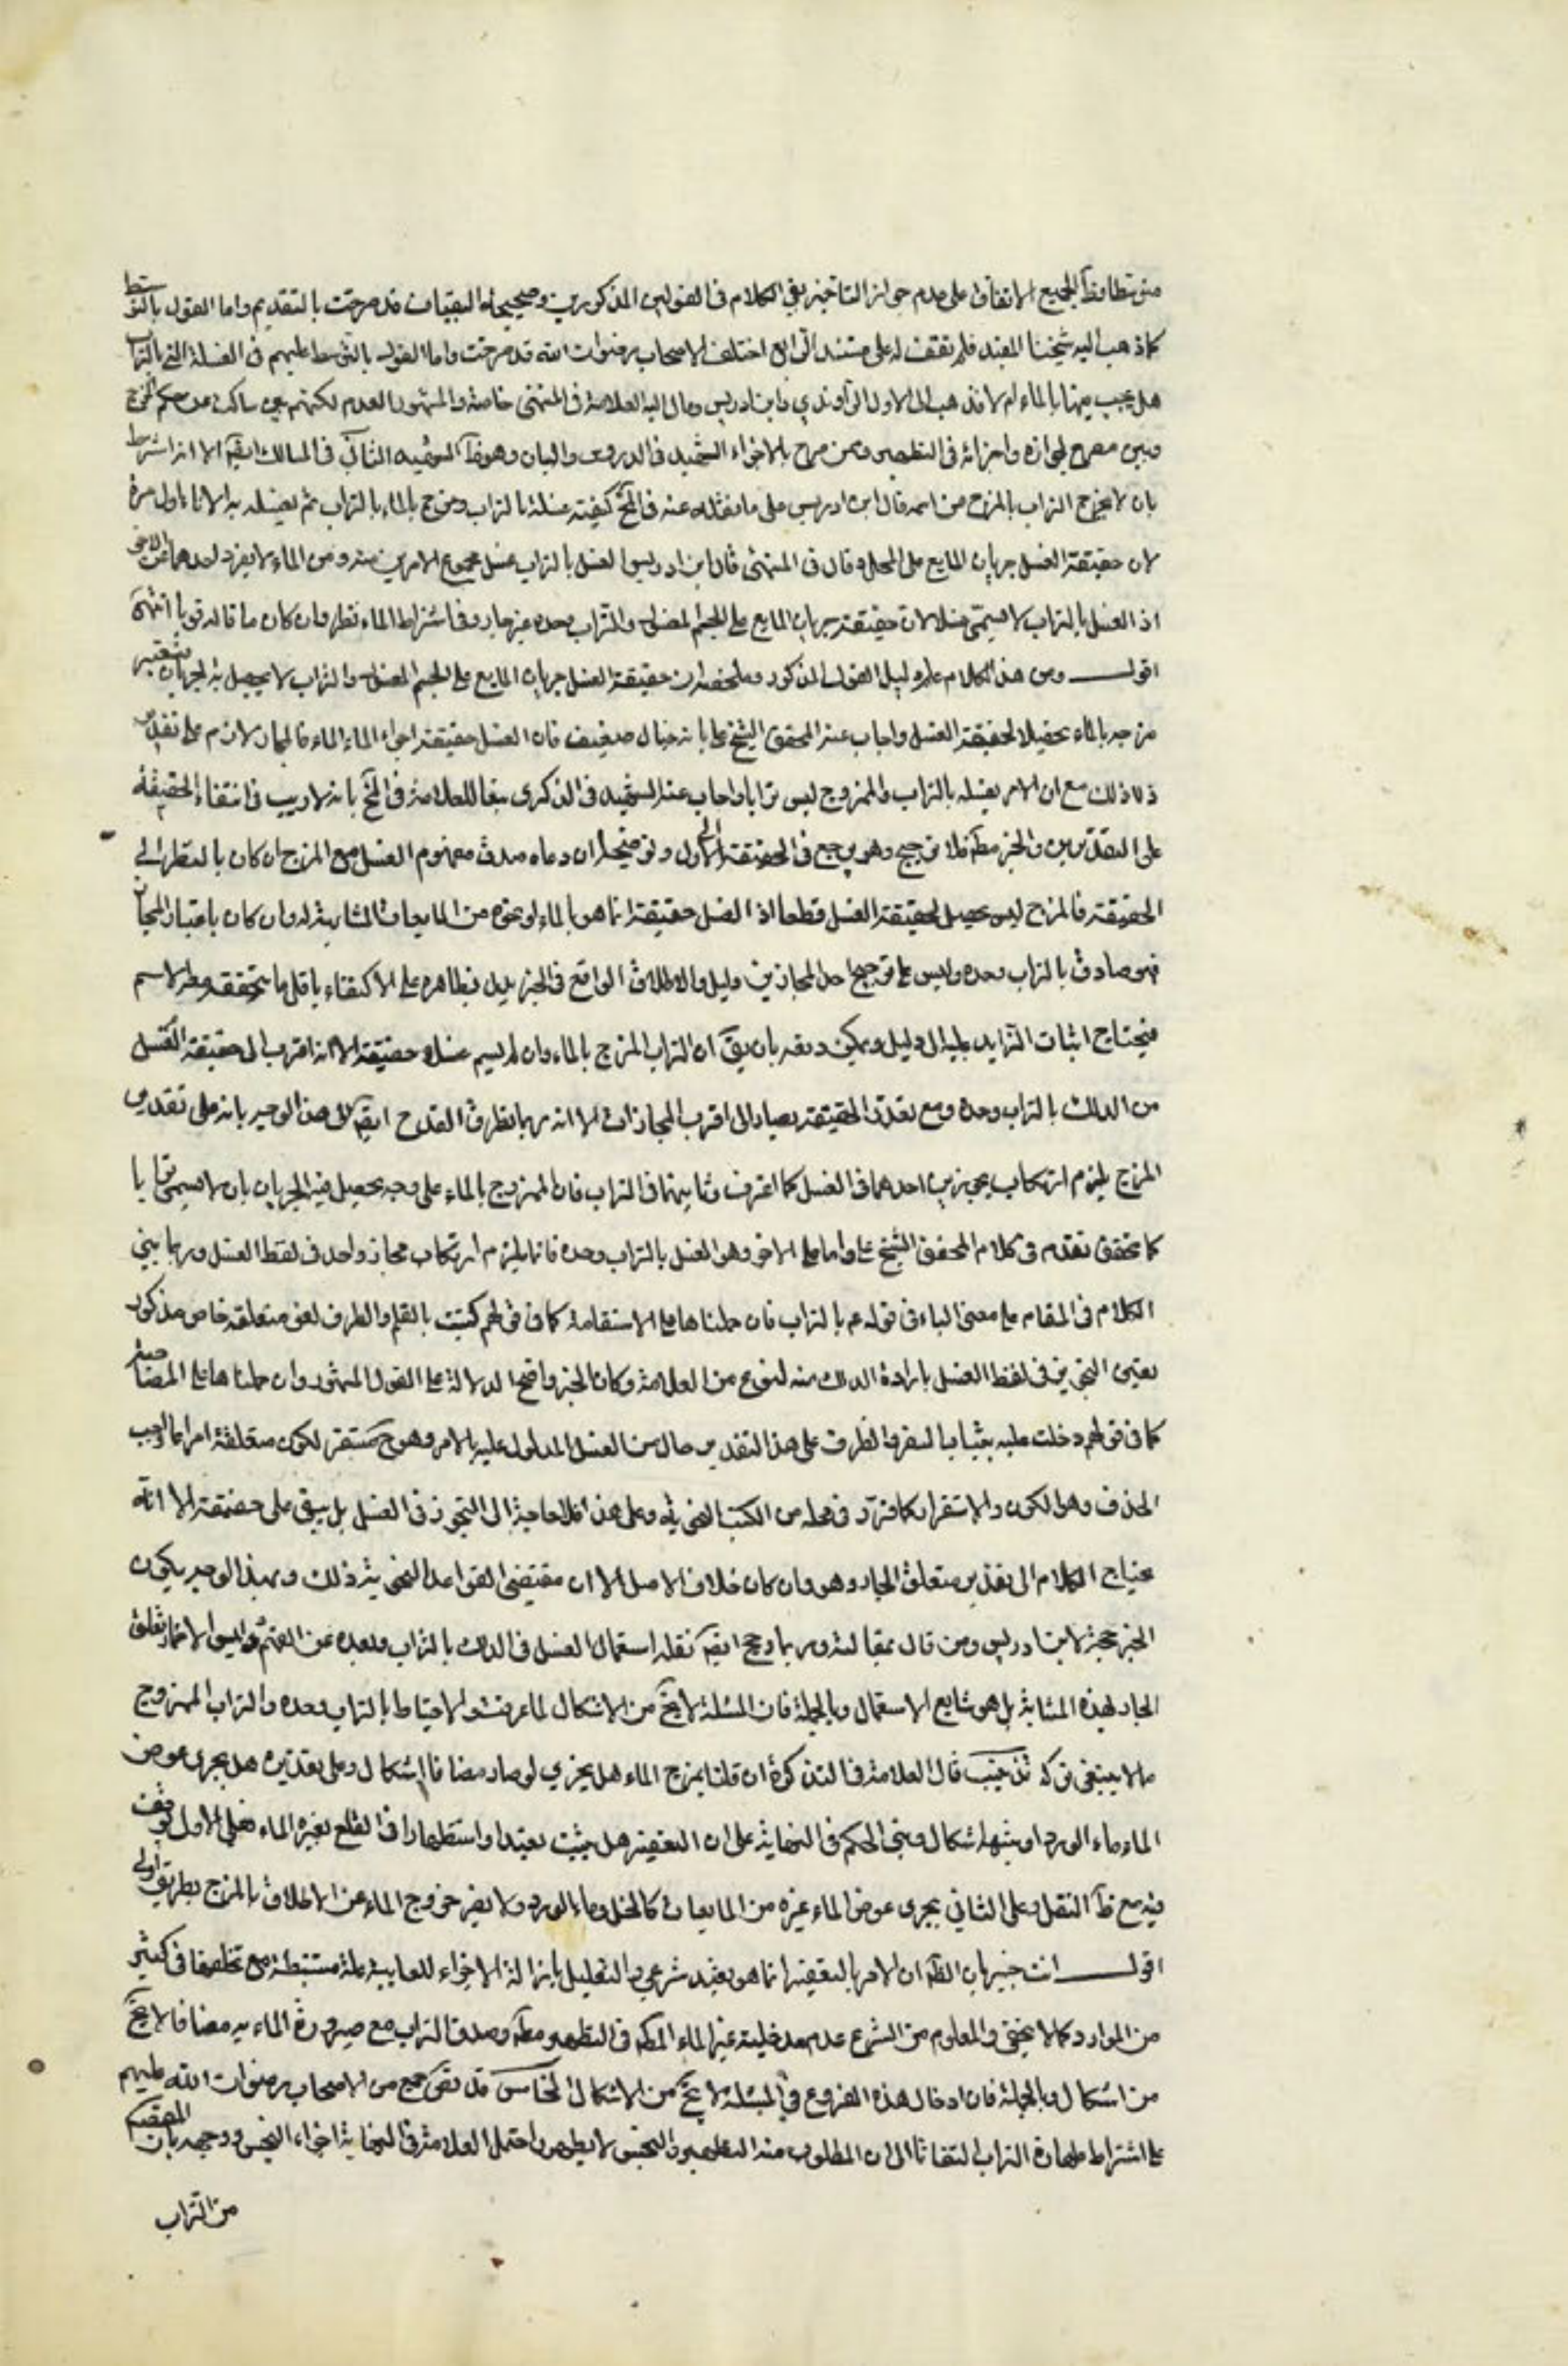 من تظافر الجميع الاتفاق على عدم جواز التأخير بقي الكلام في القولين المذكورين وصحيحة البقباق قد صرحت بالتقديم واما القول بالتوسط
كما ذهب اليه شيخنا المفيد فلم نقف له على مستند الرابع اختلف الاصحاب رضوان الله عليهم في الغسلة التي بالتراب
هل يجب مزجها بالماء ام لا فذهب الى الاول الراوندي وابن ادريس ومال اليه العلامة في المنتهى خاصة والمشهور العدم لكنهم بين ساكت عن حكم المزج
وبين مصرح بجوازه واجزائه في التطهير وممن صرح بالاجزاء الشهيد في الدروس والبيان وهو ظ الشهيد الثاني في المسالك ايضا الا انه اشترط
بان لا يخرج التراب بالمزج من اسمه قال ابن ادريس على ما نقله عنه في المخ كيفية غسله بالتراب ومزج بالماء بالتراب ثم يغسله به الاناء اول مرة
لان حقيقة الغسل جريان المايع على المحل وقال في المنتهى قال ابن ادريس الغسل بالتراب غسل بمجموع الامرين منه ومن الماء لا يفرد احدهما عن الاخر
اذ الغسل بالتراب لا يسمى غسلا لان حقيقته جريان المايع على الجسم المغسول والتراب وحده غير جار وفي اشتراط الماء نظر وان كان ما قاله قويا انتهى
اقول ومن هذا الكلام علم دليل القول المذكور وملخصه ان حقيقة الغسل جريان المايع على الجسم المغسول والتراب لا يحصل به الجريان فيعتبر
مزجه بالماء تحصيلا لحقيقة الغسل واجاب عنه المحقق الشيخ علي بانه خيال ضعيف فان الغسل حقيقة اجراء الماء فالمجاز لازم على تقدير
ذلك مع ان الامر بغسله بالتراب والممزوج ليس ترابا واجاب عنه الشهيد في الذكرى تبعا للعلامة في المخ بانه لا ريب في انتفاء الحقيقة
على التقديرين والخبر مطلق فلا ترجيح وهو يرجع في الحقيقة الى الاول وتوضيحه ان دعواه صدق مفهوم الغسل مع المزج ان كان بالنظر الى
الحقيقة فالمزج ليس محصل لحقيقة الغسل قطعا اذ الغسل حقيقة انما هو بالماء او نحوه من المايعات المشابهة له وان كان باعتبار المجاز
فهو صادق بالتراب وحده وليس على ترجيح احد المجازين دليل والاطلاق الواقع في الخبر يدل بظاهره على الاكتفاء باقل ما يتحقق معه الاسم
فيحتاج اثبات الزايد عليه الى دليل ويمكن دفعه بان يق ان التراب الممزج بالماء وان لم يسم غسلا حقيقة الا انه اقرب الى حقيقة الغسل
من الدلك بالتراب وحده ومع تعذر الحقيقة يصار الى اقرب المجازات الا انه ربما يطرق القدح ايضا الى هذا الوجه بانه على تقدير
المزج يلزم ارتكاب تجوزين احدهما في الغسل كما اعترف وثانيهما في التراب فان الممزوج بالماء على وجه يحصل فيه الجريان بان لا يسمى ترابا
كما تحقق تقدم في كلام المحقق الشيخ علي واما على الاخر وهو الغسل بالتراب وحده فانما يلزم ارتكاب مجاز واحد في لفظ الغسل وربما يبنى
الكلام في المقام على معنى الباء في قوله ع بالتراب فان حملناها على الاستعانة كما في قولهم كتبت بالقلم والظرف لغو متعلقه خاص مذكور
تعين التجوز في لفظ الغسل بارادة الدلك منه لنوع من العلامة وكان الخبر واضح الدلالة على القول المشهور وان حملناها على المصاحبة
كما في قولهم دخلت عليه بثياب السفر فالظرف على هذا التقدير حال من الغسل المدلول عليه بالامر وهو ح مستقر لكون متعلقه امرا عاما واجب
الحذف وهو الكون والاستقرار كما قرر في محله من الكتب النحوية وعلى هذا فلا حاجة الى التجوز في الغسل بل يبقى على حقيقته الا انه
يحتاج الكلام الى تقدير متعلق الجار وهو وان كان خلاف الاصل الا ان مقتضى القواعد النحوية ذلك وبهذا الوجه يكون
الخبر حجة لابن ادريس ومن قال بمقالته وربما رجح ايضا بقلة استعمال الغسل في الدلك بالتراب وبعده عن الفهم وليس الاضمار تعلق
الجار بهذه المثابة بل هو شايع الاستعمال وبالجملة فان المسئلة لا تخ من الاشكال لما عرفت والاحتياط بالتراب وحده والتراب الممزوج
مما لا ينبغي تركه تذنيب قال العلامة في التذكرة ان قلنا بمزج الماء هل يجزي لو صار مضافا اشكال وعلى تقديره هل يجزي عوض
الماء ماء الورد او شبهه اشكال ومبنى الحكم في النهاية على ان التعفير هل يثبت تعبدا او استظهارا في القلع بغير الماء فعلى الاول توقف
فيه مع ظ النقل وعلى الثاني يجزى عوض الماء غيره من المايعات كالخل وماء الورد ولا يضر خروج الماء عن الاطلاق بالمزج بطريق اولى
اقول انت خبير بان الظ ان الامر بالتعفير انما هو تعبد شرعي والتعليل بازالة الاجزاء اللعابية علة مستنبطة مع تخلفها في كثير
من الموارد كما لا يخفى والمعلوم من الشرع عدم مدخلية غير الماء المطلق في التطهير مطلقا وصدق التراب مع صيرورة الماء به مضافا لا يخ
من اشكال وبالجملة فان ادخال هذه الفروع في المسئلة لا يخ من الاشكال الخامس قد نص جمع من الاصحاب رضوان الله عليهم
على اشتراط طهارة التراب التفاتا الى ان المطلوب منه التطهير والنجس لا يطهر واحتمل العلامة في النهاية اجزاء النجس ووجهه بان المقصود
من التراب